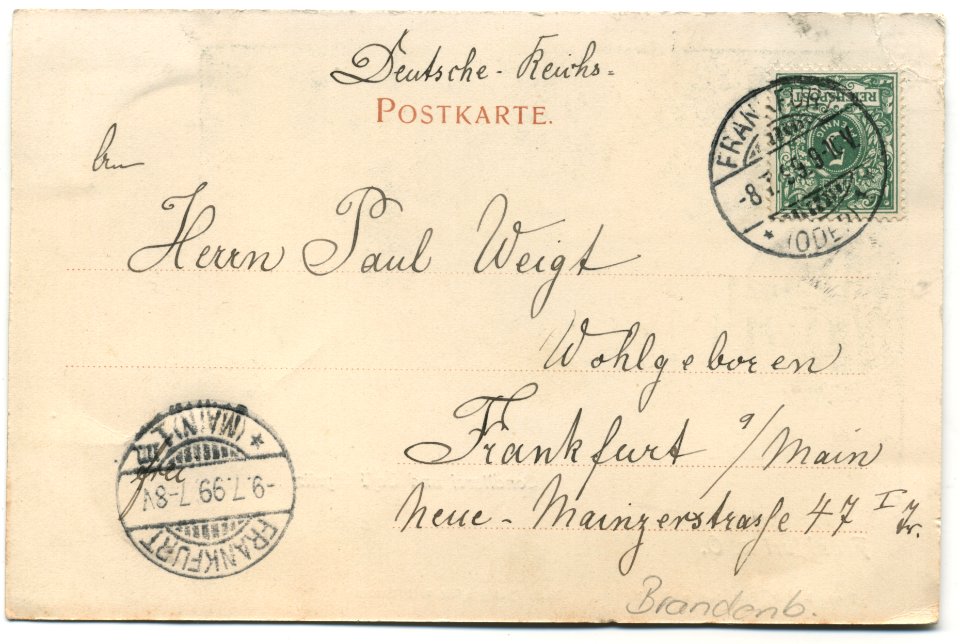 Deutsche-Reichs-
POSTKARTE.
REICHSPOST
5
FRANKFURT
-8.7.99.9-10V.
* (ODER)
Herrn Paul Weigt
Wohlgeboren
Frankfurt a/Main
Neue-Mainzerstrasse 47 I
* (MAIN) 1
-9.7.99.7-8V
FRANKFURT
Brandenb.